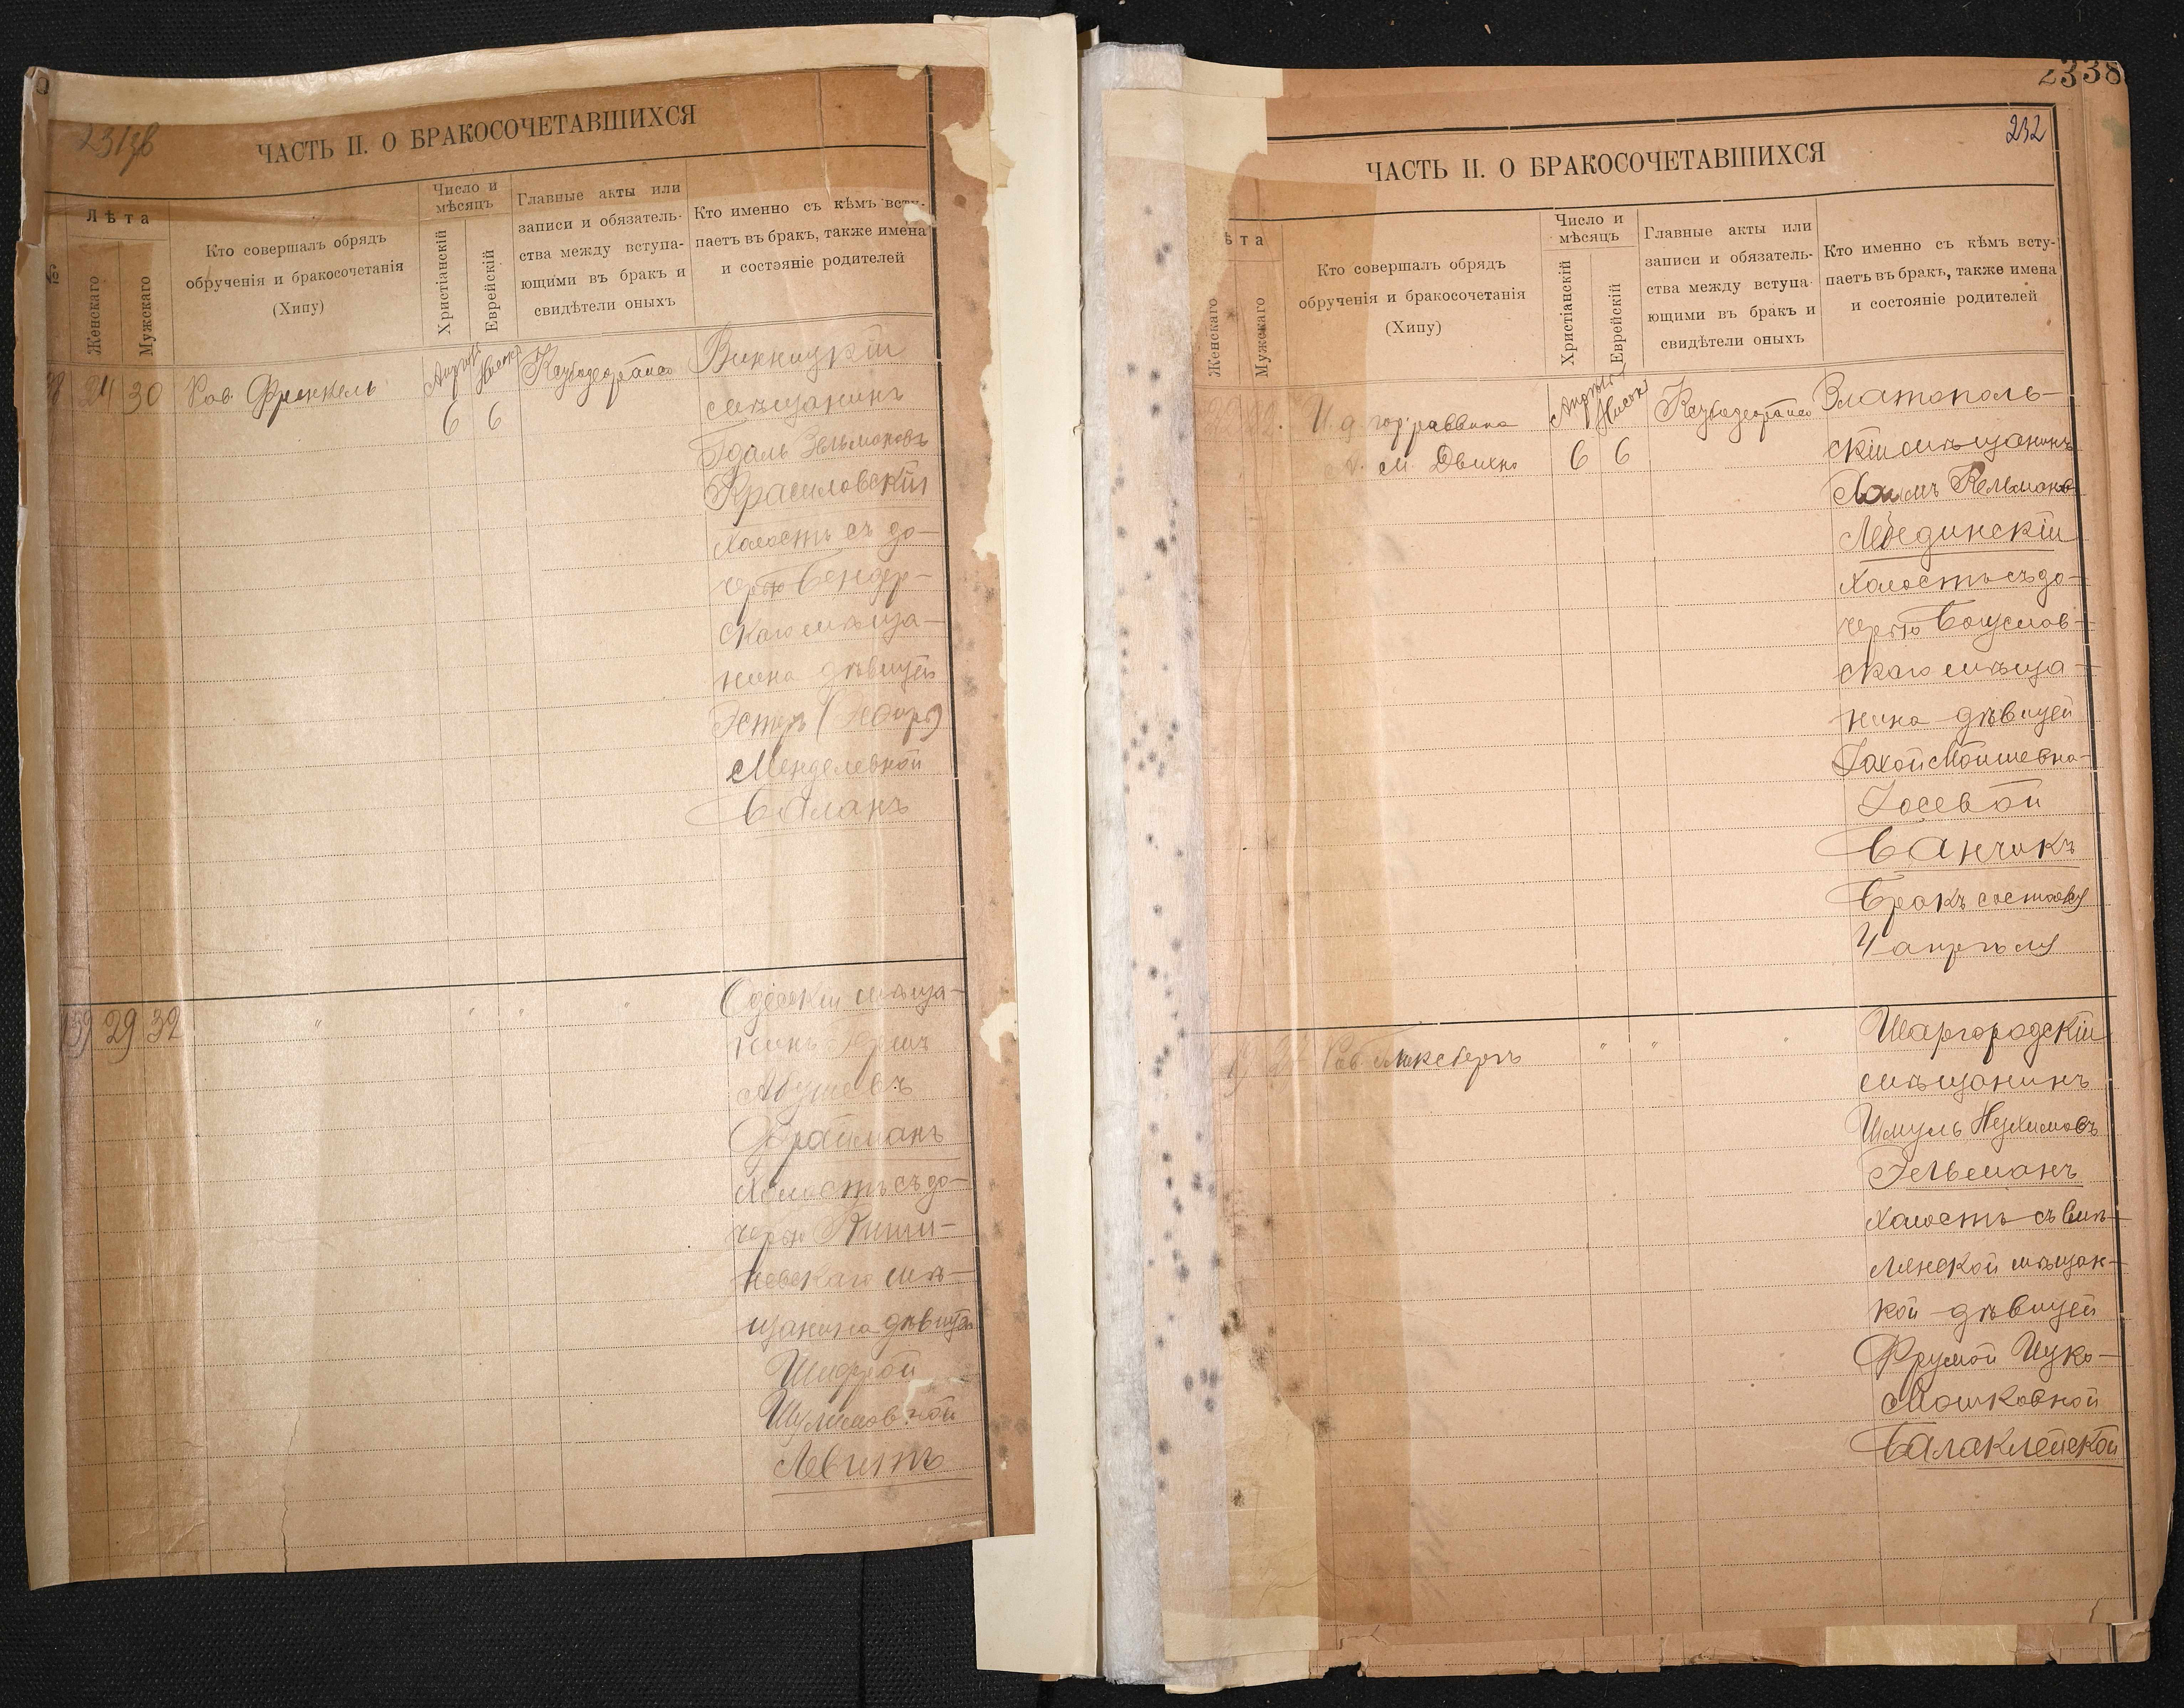 231 об
ЧАСТЬ II. О БРАКОСОЧЕТАВШИХСЯ
№
Лѣта
Женскаго
Мужскаго
Кто совершалъ обрядъ
обрученія и бракосочетанія
(Хипу)
Число и
мѣсяцъ
Христіанскій
Еврейскій
Главные акты или
записи и обязатель-
ства между вступа-
ющими въ бракъ и
свидѣтели оныхъ
Кто именно съ кѣмъ всту-
паетъ въ бракъ, также имена
и состояніе родителей
24 30 Рав. Френкель
6 6
Винницкій
мѣщанинъ
Гдаль Зельмановъ
Красиловскій
холостъ съ до-
черью Бендер-
скаго мѣща-
нина дѣвицей
Эстеръ
Менделевной
Баланъ
29 32 " " " "
Одесскій мѣща-
нинъ Гершъ
Абушевъ
Фрайманъ
холостъ съ до-
черью Киши-
невскаго мѣ-
щанина дѣвицей
Шифрой
Шулимовной
Левитъ
2338
232
ЧАСТЬ II. О БРАКОСОЧЕТАВШИХСЯ
ѣта
Женскаго
Мужскаго
Кто совершалъ обрядъ
обрученія и бракосочетанія
(Хипу)
Число и
мѣсяцъ
Христіанскій
Еврейскій
Главные акты или
записи и обязатель-
ства между вступа-
ющими въ бракъ и
свидѣтели оныхъ
Кто именно съ кѣмъ всту-
паетъ въ бракъ, также имена
и состояніе родителей
И. д. гор. раввина
М. Двинъ
6 6
Златополь-
скій мѣщанинъ
Хаимъ Кельманов
Лебединскій
холостъ съ до-
черью Богуслав-
скаго мѣща-
нина дѣвицей
Мойшевна-
Іосевой
Банчикъ
Бракъ состоялся
4 апрѣля
" " "
Шаргородскій
мѣщанинъ
Шмуль Нухимовъ
Гельманъ
холостъ съ Вил-
ленской мѣщан-
кой дѣвицей
Фрумой Цук-
Мошковной
Балаклейской